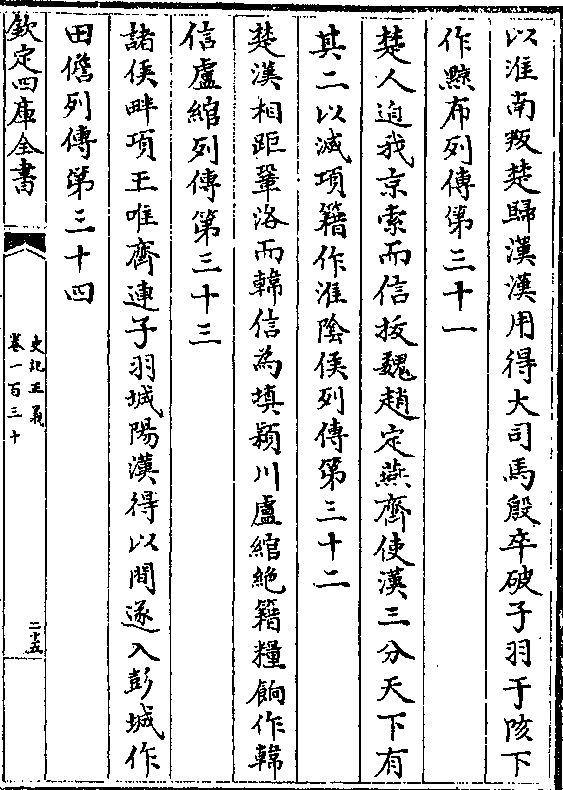 以淮南叛楚歸漢漢用得大司馬殷卒破子羽于垓下
作黥布列傳第三十一
楚人迫我京索而信拔魏趙定燕齊使漢三分天下有
其二以滅項籍作淮陰侯列傳第三十二
楚漢相距鞏洛而韓信為填潁川盧綰絶籍糧餉作韓
信盧綰列傳第三十三
諸侯畔項王唯齊連子羽城陽漢得以間遂入彭城作
田儋列傳第三十四
欽定四庫全書
史記正義
卷一百三十
二十五